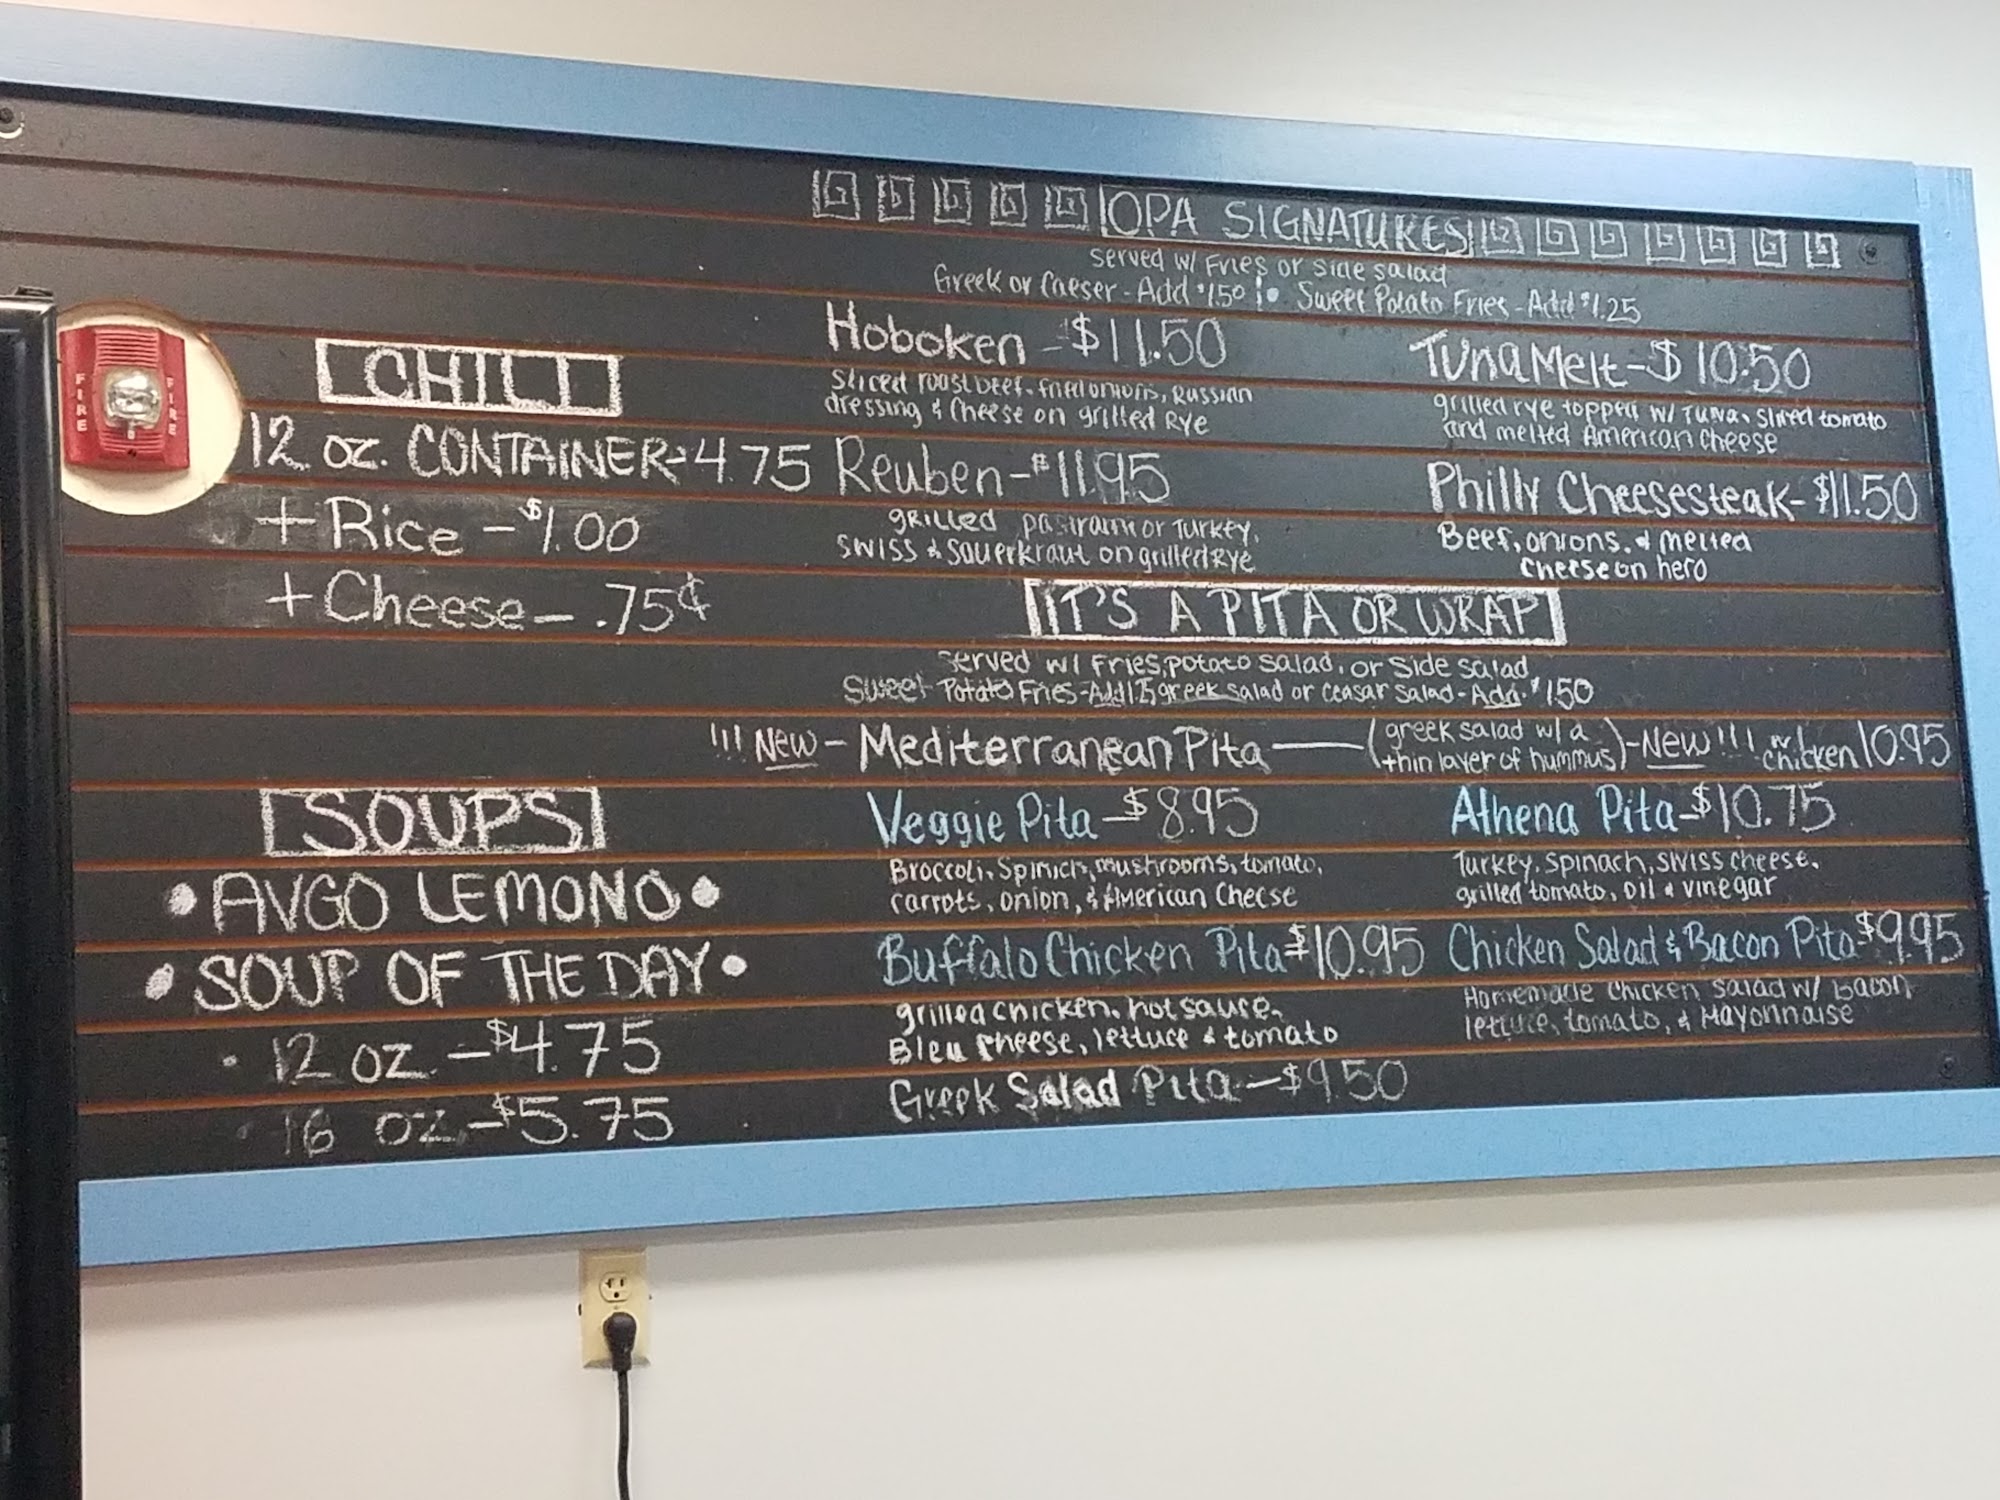 OPA SIGNATURES
served w/ Fries or side salad
Greek or Caeser - Add $1.50 • Sweet Potato Fries - Add $1.25
Hoboken - $11.50
sliced roast beef, fried onions, Russian
dressing & Cheese on grilled Rye
Tuna Melt - $10.50
grilled rye topped w/ Tuna, sliced tomato
and melted American cheese
Reuben - $11.95
grilled pastrami or Turkey,
swiss & Sauerkraut on grilled Rye
Philly Cheesesteak - $11.50
Beef, onions, & melted
cheese on hero
CHILI
12 oz. CONTAINER - 4.75
+ Rice - $1.00
+ Cheese - .75¢
IT'S A PITA OR WRAP
served w/ Fries, potato salad, or side salad
Sweet Potato Fries - Add 1.25 greek salad or ceasar salad - Add $1.50
!!! New - Mediterranean Pita — (greek salad w/ a thin layer of hummus) - New!!! w/ chicken 10.95
Veggie Pita - $8.95
Broccoli, Spinich, mushrooms, tomato,
carrots, onion, & American Cheese
Athena Pita - $10.75
Turkey, spinach, swiss cheese,
grilled tomato, oil & vinegar
Buffalo Chicken Pita - $10.95
grilled chicken, hot sauce,
Bleu cheese, lettuce & tomato
Chicken Salad & Bacon Pita - $9.95
Homemade Chicken salad w/ Bacon
lettuce, tomato, & Mayonnaise
Greek Salad Pita - $9.50
SOUPS
• AVGO LEMONO •
• SOUP OF THE DAY •
• 12 oz. - $4.75
• 16 oz. - $5.75
FIRE
FIRE